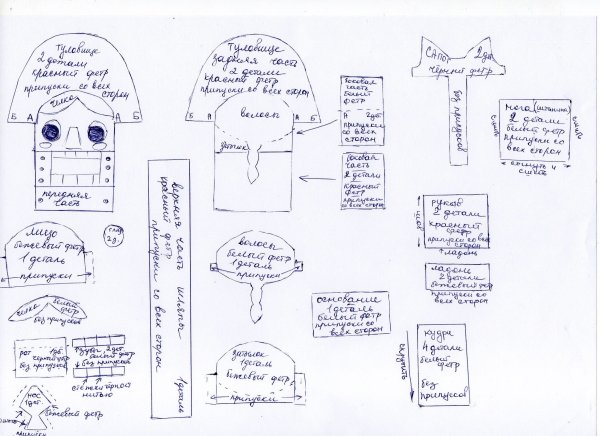 Туловище
2 детали
красный фетр
припуски со всех
сторон
челка
Б
А
А
Б
передняя
часть
Туловище
задняя часть
2 детали
красный фетр
припуски со всех
сторон
Б
А
А
Б
волосы
затылок
боковая
часть
белый
фетр
А
2 дет
припуски
со всех
сторон
боковая
часть
2 детали
красный
фетр
припуски
со всех сторон
САПОГ
2 дет
чёрный фетр
без припусков
нога (штанина)
2 детали
белый фетр
припуски со
всех сторон
сшить
сшить
согнуть и
сшить
верхняя часть шляпы 1 деталь
красный фетр
припуски со всех сторон
лицо
бежевый фетр
1 деталь
припуски
глаз
2 д.
челка
белый
фетр
без припусков
рот 1 дет.
черный фетр
без припусков
зубы 2 дет
белый фетр
без припусков
стежки черной
нитью
нос
1 дет
бежевый фетр
припуски
волосы
белый фетр
1 деталь
припуски
затылок
1 деталь
бежевый фетр
припуски
основание
1 деталь
белый фетр
припуски со
всех сторон
рукав
2 детали
красный
фетр
припуски со всех
сторон
шов
ладонь
ладонь
2 детали
бежевый фетр
припуски со
всех сторон
скрутить
кудри
4 детали
белый
фетр
без
припусков